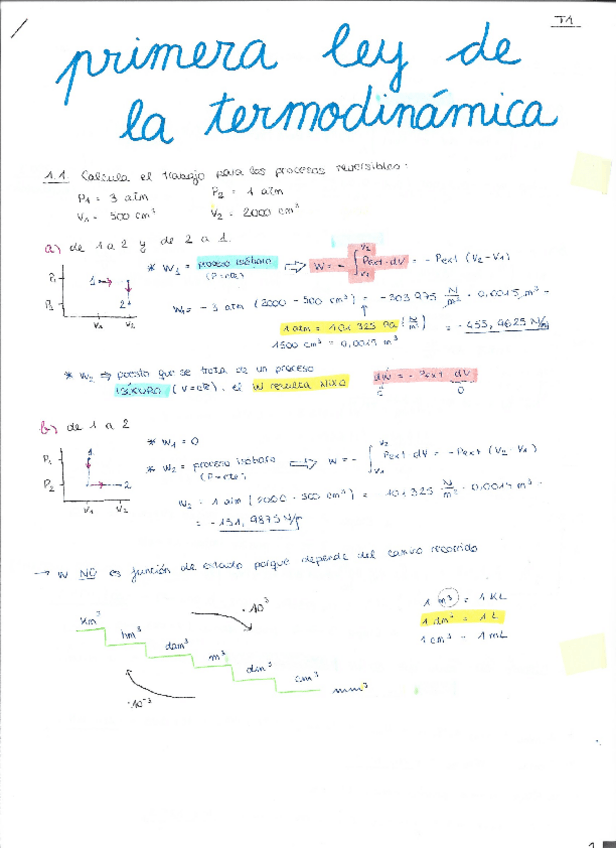 T1
primera ley de
la termodinámica
1.1. Calcula el trabajo para los procesos reversibles:
P1 = 3 atm P2 = 1 atm
V1 = 500 cm³ V2 = 2000 cm³
a) de 1 a 2 y de 2 a 1.
* W1 = proceso isóbaro ⇒ W = - ∫ Pext · dV = - Pext (V2 - V1)
(P=cte)
P1 1 2 V1 V2
W1 = - 3 atm (2000 - 500 cm³) = - 303975 N/m² · 0,0015 m³ =
1 atm = 101325 Pa (N/m²) = - 455,9625 N/m
1500 cm³ = 0,0015 m³
* W2 ⇒ puesto que se trata de un proceso
ISÓCORO (V=cte), el W resulta NULO dW = - Pext dV
0
b) de 1 a 2
* W1 = 0
P1 P2 1 2 V1 V2
* W2 = proceso isóbaro ⇒ W = - ∫ Pext dV = - Pext (V2 - V1)
(P=cte)
W2 = 1 atm (2000 - 500 cm³) = 101325 N/m² · 0,0015 m³ =
= - 151,9875
→ W NO es función de estado porque depende del camino recorrido
Km³ hm³ dam³ m³ dm³ cm³ mm³
· 10³
· 10⁻³
1 m³ = 1 KL
1 dm³ = 1 L
1 cm³ = 1 mL
1